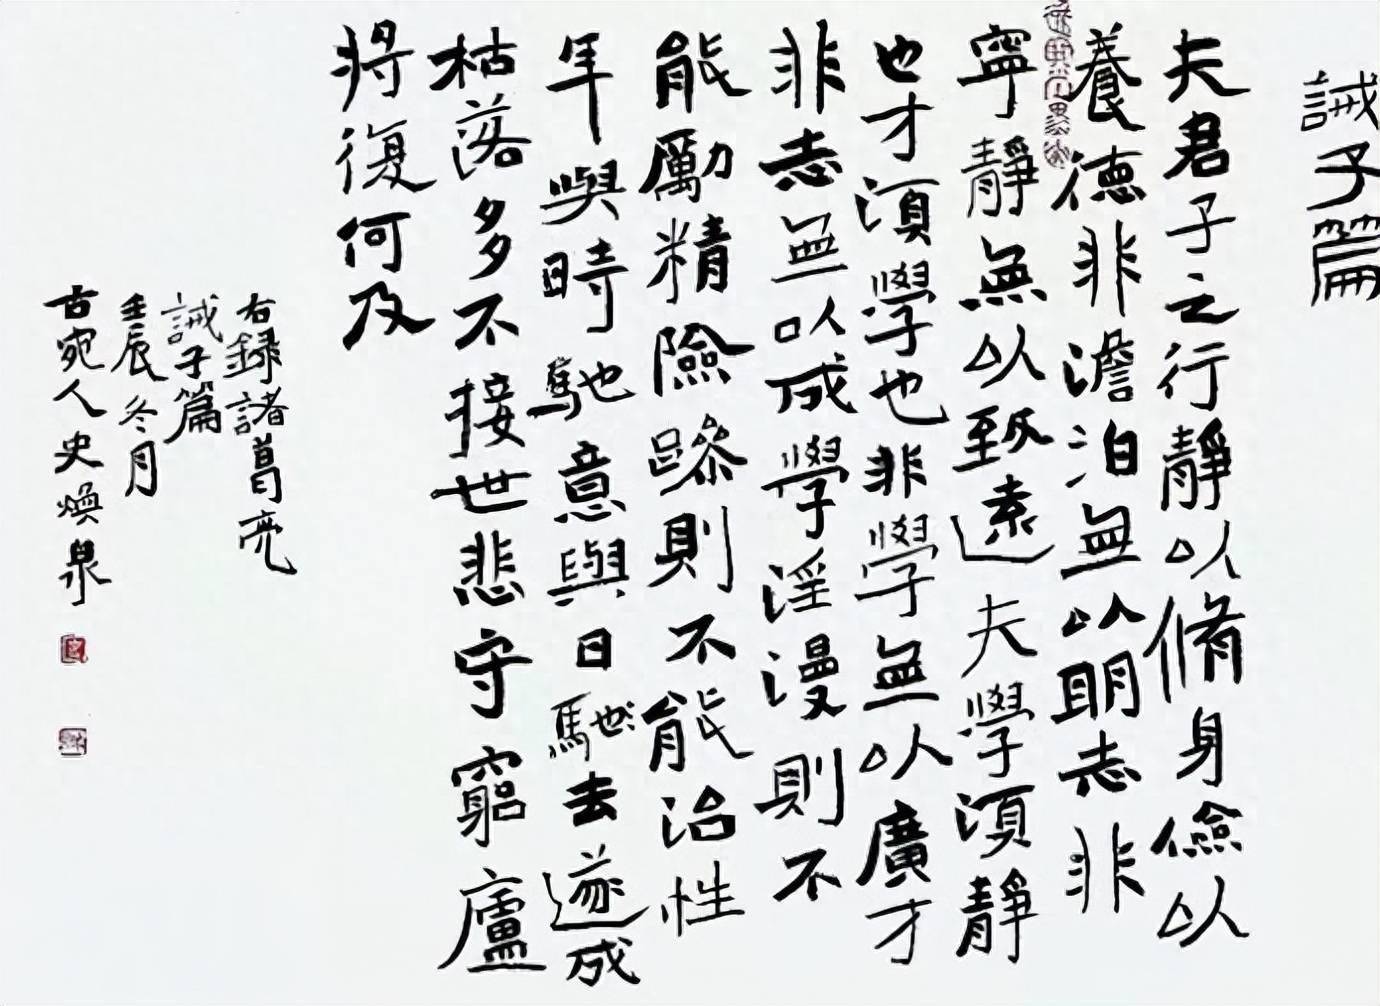 誡子篇
夫君子之行靜以脩身儉以
養德非澹泊無以明志非
寧靜無以致遠夫學須靜
也才須學也非學無以廣才
非志無以成學淫漫則不
能勵精險躁則不能治性
年與時馳意與日馳去遂成
枯落多不接世悲守窮廬
將復何及
右録諸葛亮
誡子篇
壬辰冬月
古宛人史煥泉